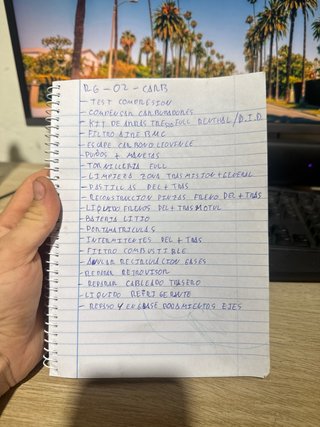 RG - 02 - CARB
- TEST COMPRESION
- COMPENSAR CARBURADORES
- KIT DE ARRASTRE FULL RENTHAL / D.I.D
- FILTRO AIRE BMC
- ESCAPE CARBONO LEOVINCE
- PUÑOS + MANETAS
- TORNILLERIA FULL
- LIMPIEZA ZONA TRASMISION + GENERAL
- PASTILLAS DEL + TRAS
- RECONSTRUCCION PINZAS FRENO DEL + TRAS
- LIQUIDO FRENOS DEL + TRAS MOTUL
- BATERIA LITIO
- PORTAMATRICULAS
- INTERMITENTES DEL + TRAS
- FILTRO COMBUSTIBLE
- ANULAR RECIRCULACION GASES
- REPARAR RETROVISOR
- REPARAR CABLEADO TRASERO
- LIQUIDO REFRIGERANTE
- REPASO Y ENGRASE RODAMIENTOS EJES